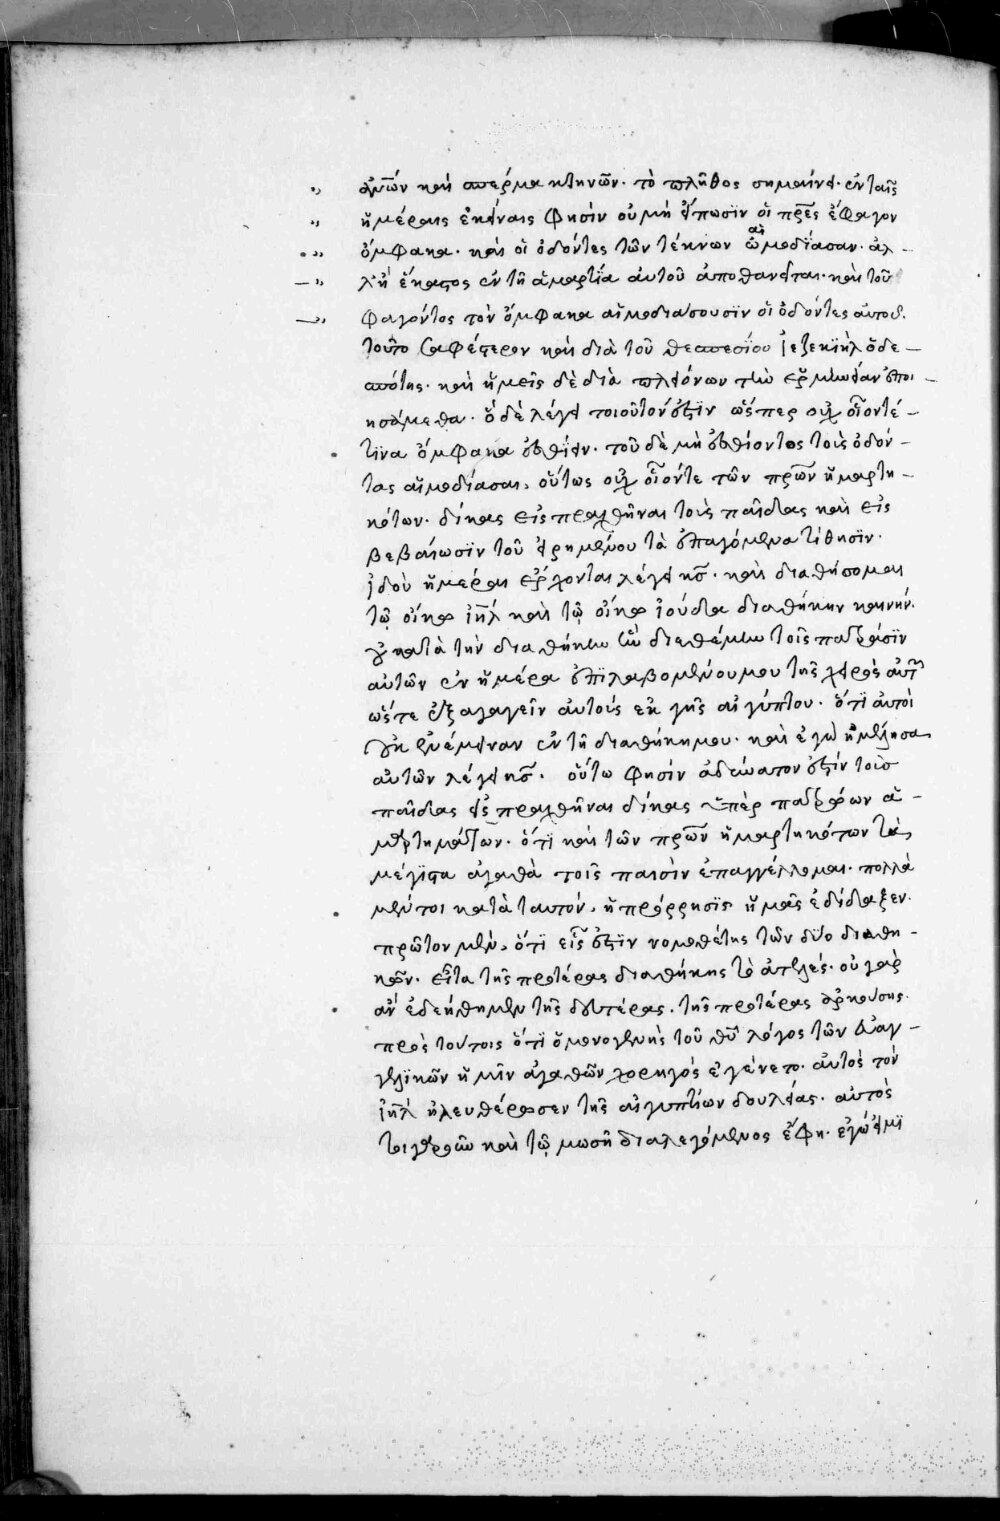 ἀν̅ων καὶ σπέρμα κτηνῶν· τὸ πλῆθος σημαίνει· ἐν ταῖς
ἡμέραις ἐκείναις φησὶν οὐ μὴ εἴπωσϊν οἱ πρ̅ες ἔφαγον
ὄμφακα· καὶ οἱ ὀδόντες τῶν τέκνων ὡμοδίασαν· ἀλ-
λ' ἢ ἕκαστος ἐν τῆ ἁμαρτία αὐτοῦ ἀποθανεῖται· καὶ τοῦ
φαγόντος τὸν ὄμφακα αἱμοδιάσουσϊν οἱ ὀδόντες αὐτοῦ.
τοῦτο σαφέστερον καὶ διὰ τοῦ θεσπεσίου ἰεζεκιὴλ ὁ δε-
σπότης· καὶ ἡμεῖς δὲ διὰ πλειόνων τὴν ἑρμηνείαν ἐποι-
ησάμεθα· ὃ δὲ λέγει τοιοῦτόν ἐστϊν ὥσπερ οὐχ οἷόν τέ-
τϊνα ὄμφακα ἐσθίειν· τοῦ δὲ μὴ ἐσθίοντος τοὺς ὀδόν-
τας αἱμοδίασαι, οὕτως οὐχ οἷόν τε τῶν πρ̅ων ἡμαρτη-
κότων· δίκας εἰσπραχθῆναι τοὺς παῖδας καὶ εἰς
βεβαίωσϊν τοῦ εἰρημένου τὰ ἐπαγόμενα τίθησϊν·
ἰδοὺ ἡμέραι ἔρχονται λέγει κ̅ς· καὶ διαθήσομαι
τῶ οἴκω ἰη̅λ καὶ τῶ οἴκω ἰούδα διαθήκην καινήν·
οὐ κατὰ τὴν διαθήκην ἣν διεθέμην τοῖς πατράσϊν
αὐτῶν ἐν ἡμέρα ἐπϊλαβομένου μου τῆς χειρὸς αὐτῶν
ὥστε ἐξαγαγεῖν αὐτοὺς ἐκ γῆς αἰγύπτου· ὅτϊ αὐτοὶ
οὐκ ἐνέμειναν ἐν τῆ διαθήκη μου· καὶ ἐγὼ ἠμέλησα
αὐτῶν λέγει κ̅ς· οὕτω φησὶν ἀδύνατον ἐστὶν τοὺς
παῖδας εἰσπραχθῆναι δίκας ὑπὲρ πατρώων ἁ-
μαρτημάτων· ὅτϊ καὶ τῶν πρ̅ων ἡμαρτηκότων τὰ
μέγϊστα ἀγαθὰ τοῖς παισὶν ἐπαγγέλλομαι· πολλὰ
μέντοι κατὰ ταυτὸν, ἡ πρόρρησϊς ἡμᾶς ἐδίδαξεν·
πρῶτον μὲν, ὅτϊ εἷς ἐστϊν νομοθέτης τῶν δύο διαθη-
κῶν· εἶτα τῆς προτέρας διαθήκης τὸ ἀτελές· οὐ γὰρ
ἂν ἐδεήθημεν τῆς δευτέρας, τῆς προτέρας ἀρκούσης·
πρὸς τούτοις ὅτϊ ὁ μονογενὴς τοῦ θ̅υ λόγος τῶν εὐαγ-
γελϊκῶν ἡμῖν ἀγαθῶν χορηγὸς ἐγένετο· αὐτὸς τὸν
ἰη̅λ ἠλευθέρωσεν τῆς αἰγυπτίων δουλείας· αὐτὸς
τοιγαροῦν καὶ τῶ μωσῆ διαλεγόμενος ἔφη· ἐγώ εἰμϊ